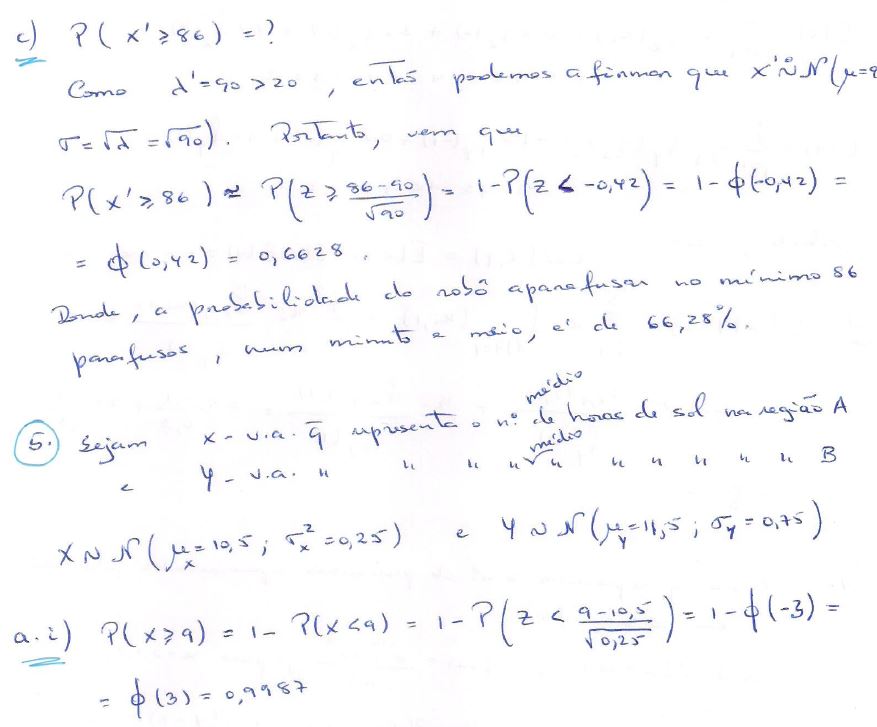 c) P( x' ⩾ 86 ) = ?
Como λ' = 90 > 20 , então podemos afirmar que x' ~° N(μ=9
σ = √λ = √90 ). Portanto, vem que
P( x' ⩾ 86 ) ≈ P( Z ⩾ (86-90)/√90 ) = 1 - P( Z < -0,42 ) = 1 - ϕ(-0,42) =
= ϕ(0,42) = 0,6628 .
Donde, a probabilidade do robô aparafusar no mínimo 86
parafusos, num minuto e meio, é de 66,28%.
5. Sejam x - v.a. q̄ representa o nº médio de horas de sol na região A
e Y - v.a. " " " " médio " " " " " " B
X ~ N( μx = 10,5 ; σx² = 0,25 ) e Y ~ N( μy = 11,5 ; σy = 0,75 )
a.i) P( X ⩾ 9 ) = 1 - P( X < 9 ) = 1 - P( Z < (9-10,5)/√0,25 ) = 1 - ϕ(-3) =
= ϕ(3) = 0,9987